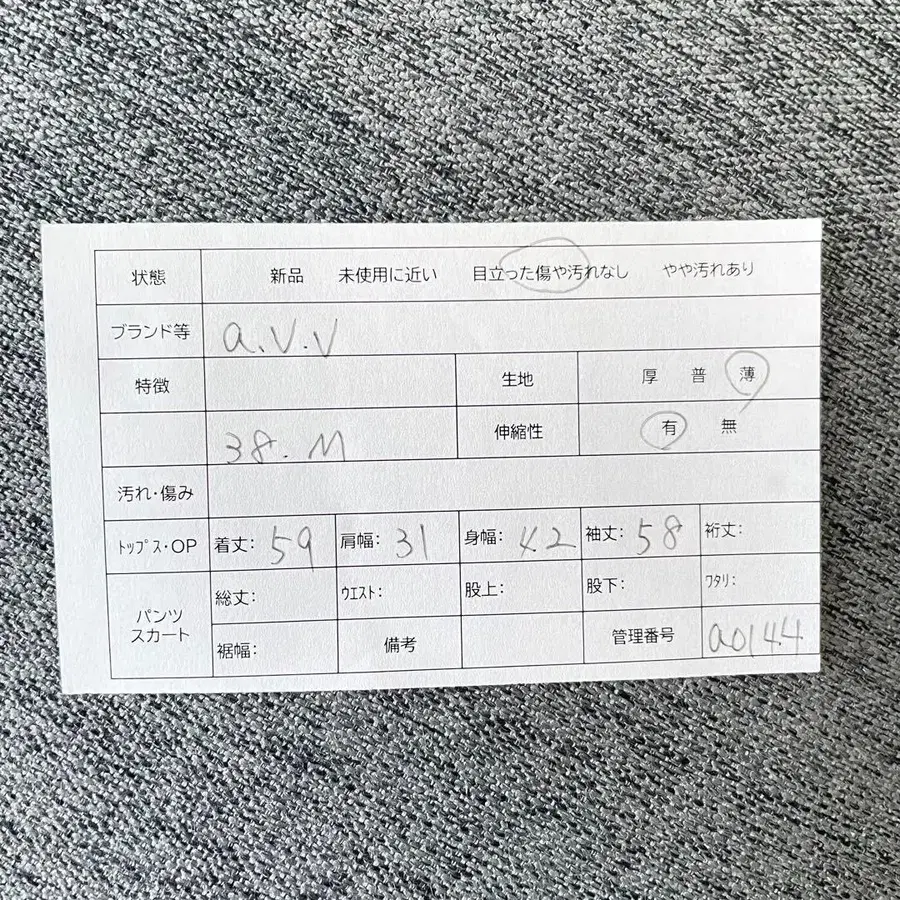 状態 新品 未使用に近い 目立った傷や汚れなし やや汚れあり
ブランド等 a.v.v
特徴 生地 厚 普 薄
38.M 伸縮性 有 無
汚れ・傷み
ﾄｯﾌﾟｽ・OP 着丈: 59 肩幅: 31 身幅: 42 袖丈: 58 裄丈:
パンツ スカート 総丈: ｳｴｽﾄ: 股上: 股下: ﾜﾀﾘ:
裾幅: 備考 管理番号 a0144